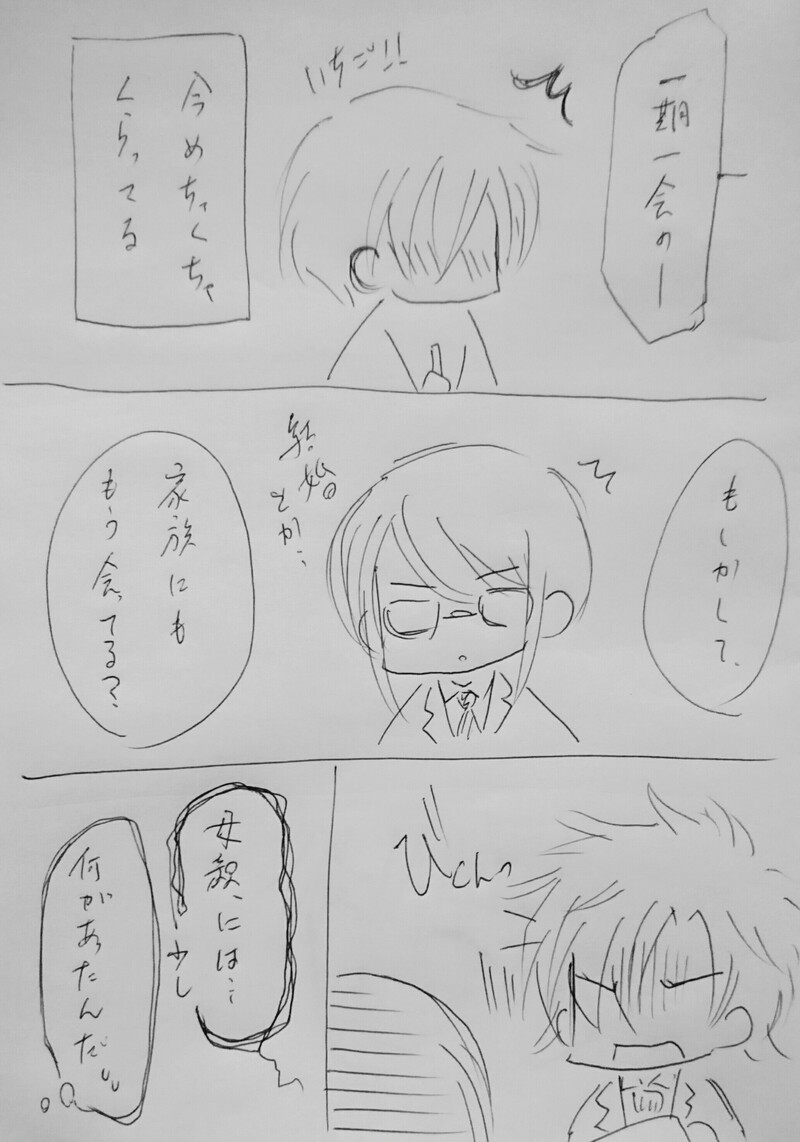 一期一会のー
いちご!!
今めちゃくちゃ
くらってる
もしかして、
結婚
とか…
家族にも
もう会ってる?
びくんっ
母親、には…
少し
何があったんだ